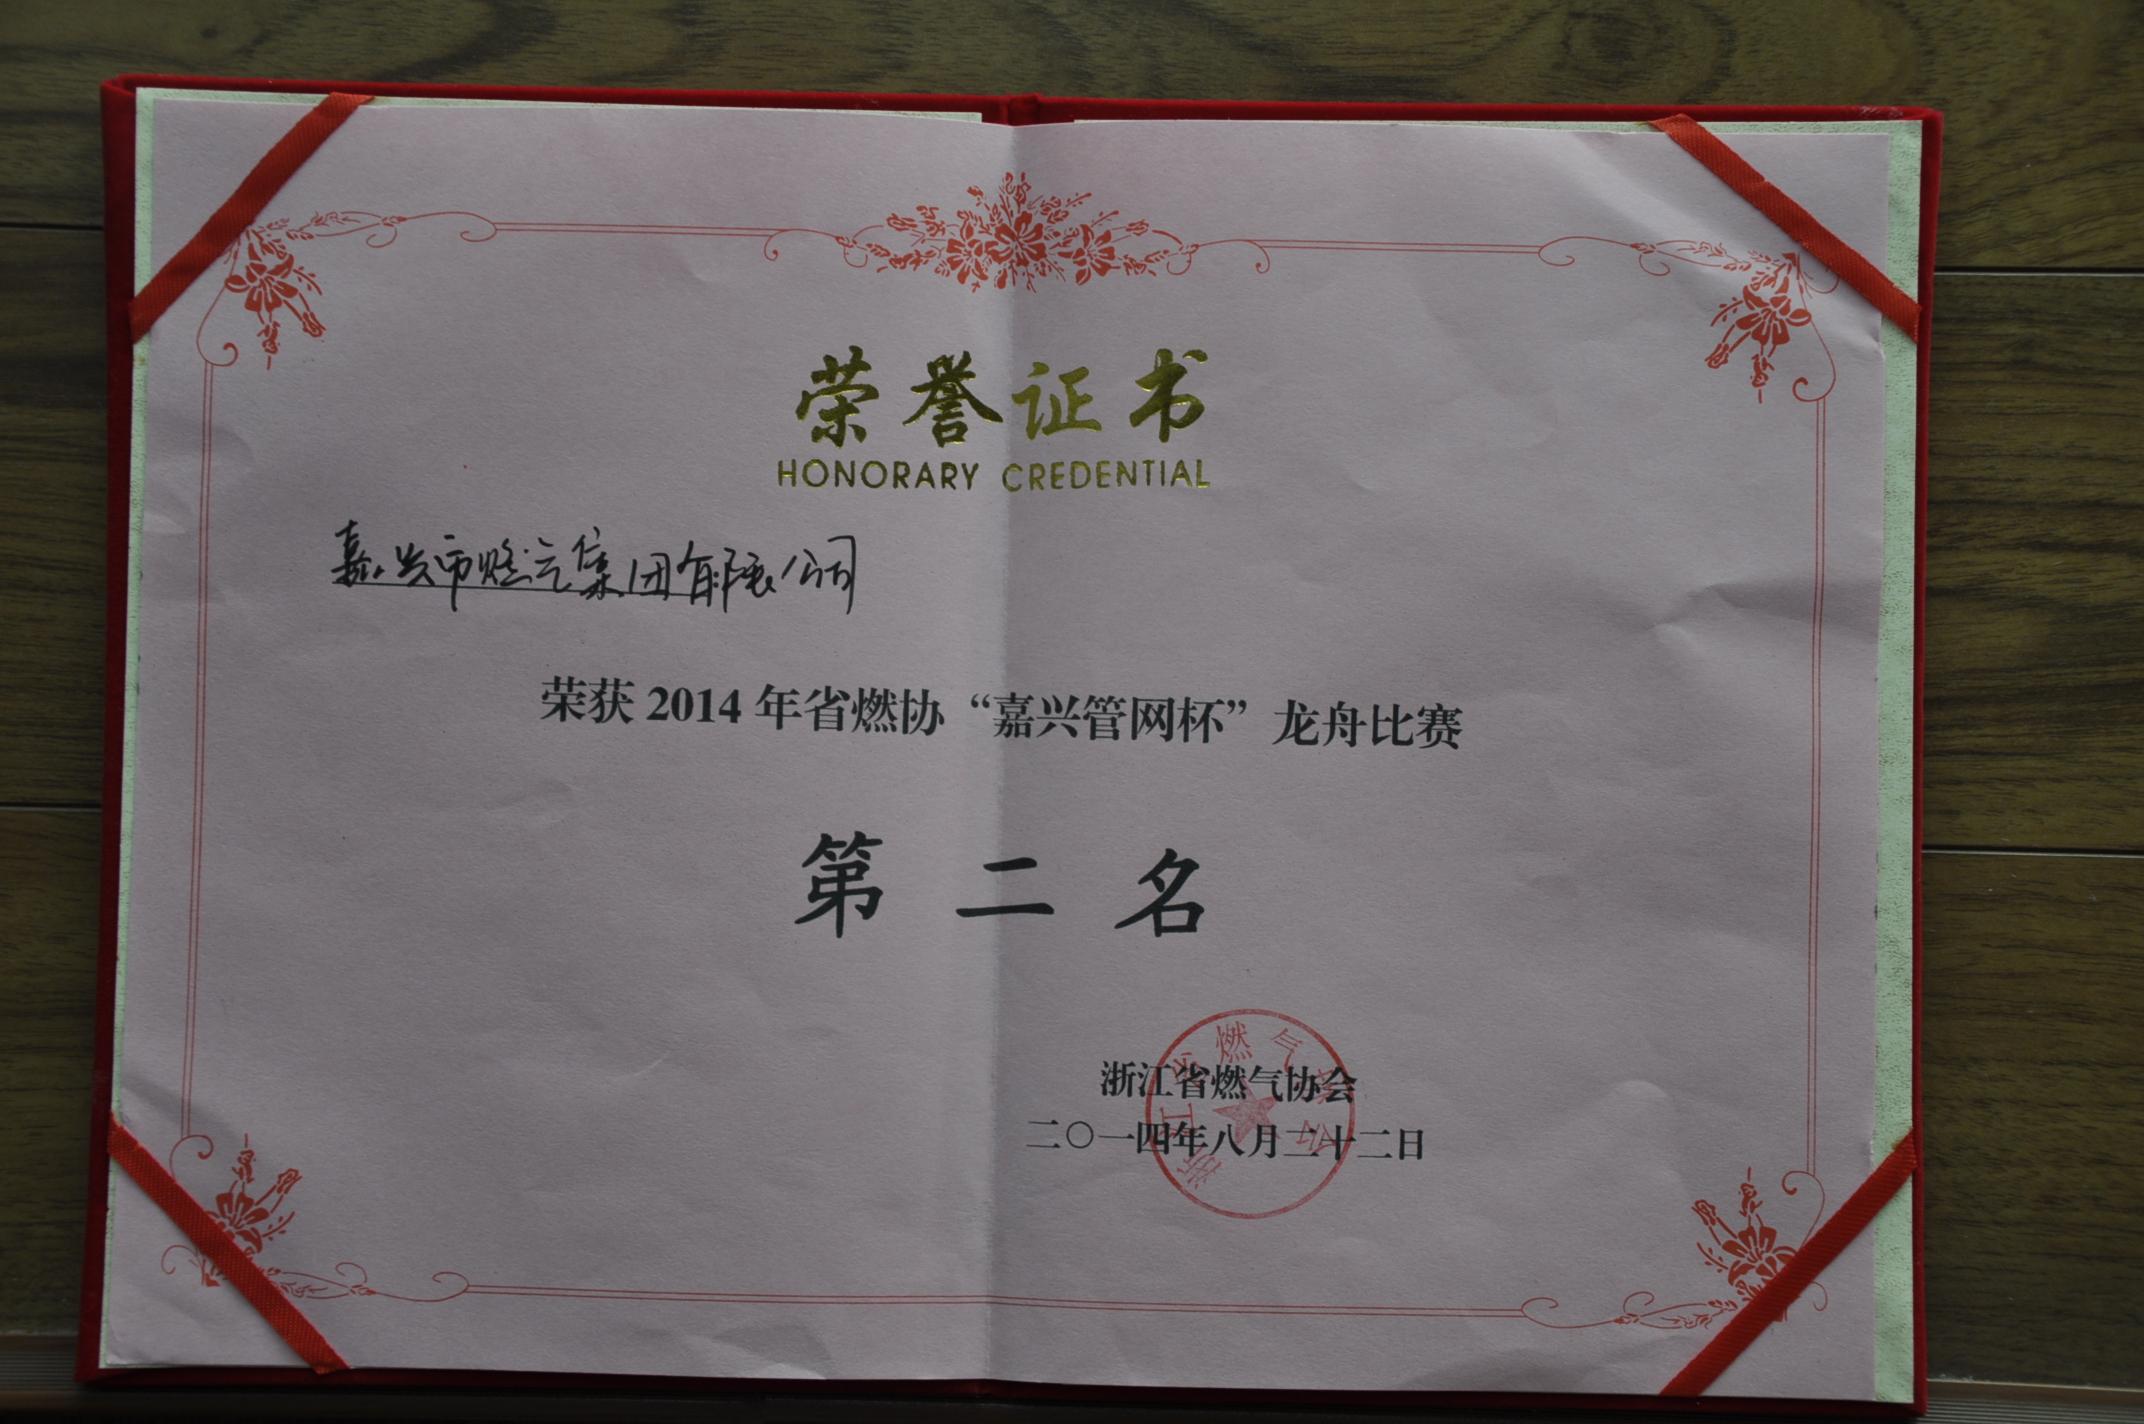 荣誉证书
HONORARY CREDENTIAL
嘉兴市燃气集团有限公司
荣获 2014 年省燃协“嘉兴管网杯”龙舟比赛
第二名
浙江省燃气协会
二〇一四年八月二十二日
浙江省燃气协会